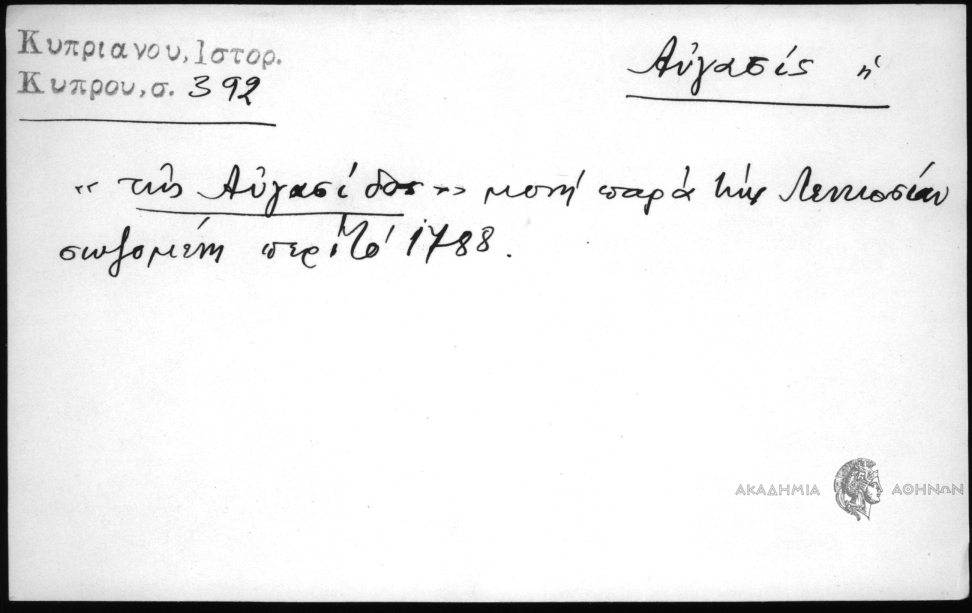 Κυπριανου, Ιστορ.
Κυπρου, σ. 392
Αὐγασίς ἡ
« τῆς Αὐγασίδος » μονή παρά τήν Λευκωσίαν
σωζομένη περί τό 1788.
ΑΚΑΔΗΜΙΑ ΑΘΗΝΩΝ